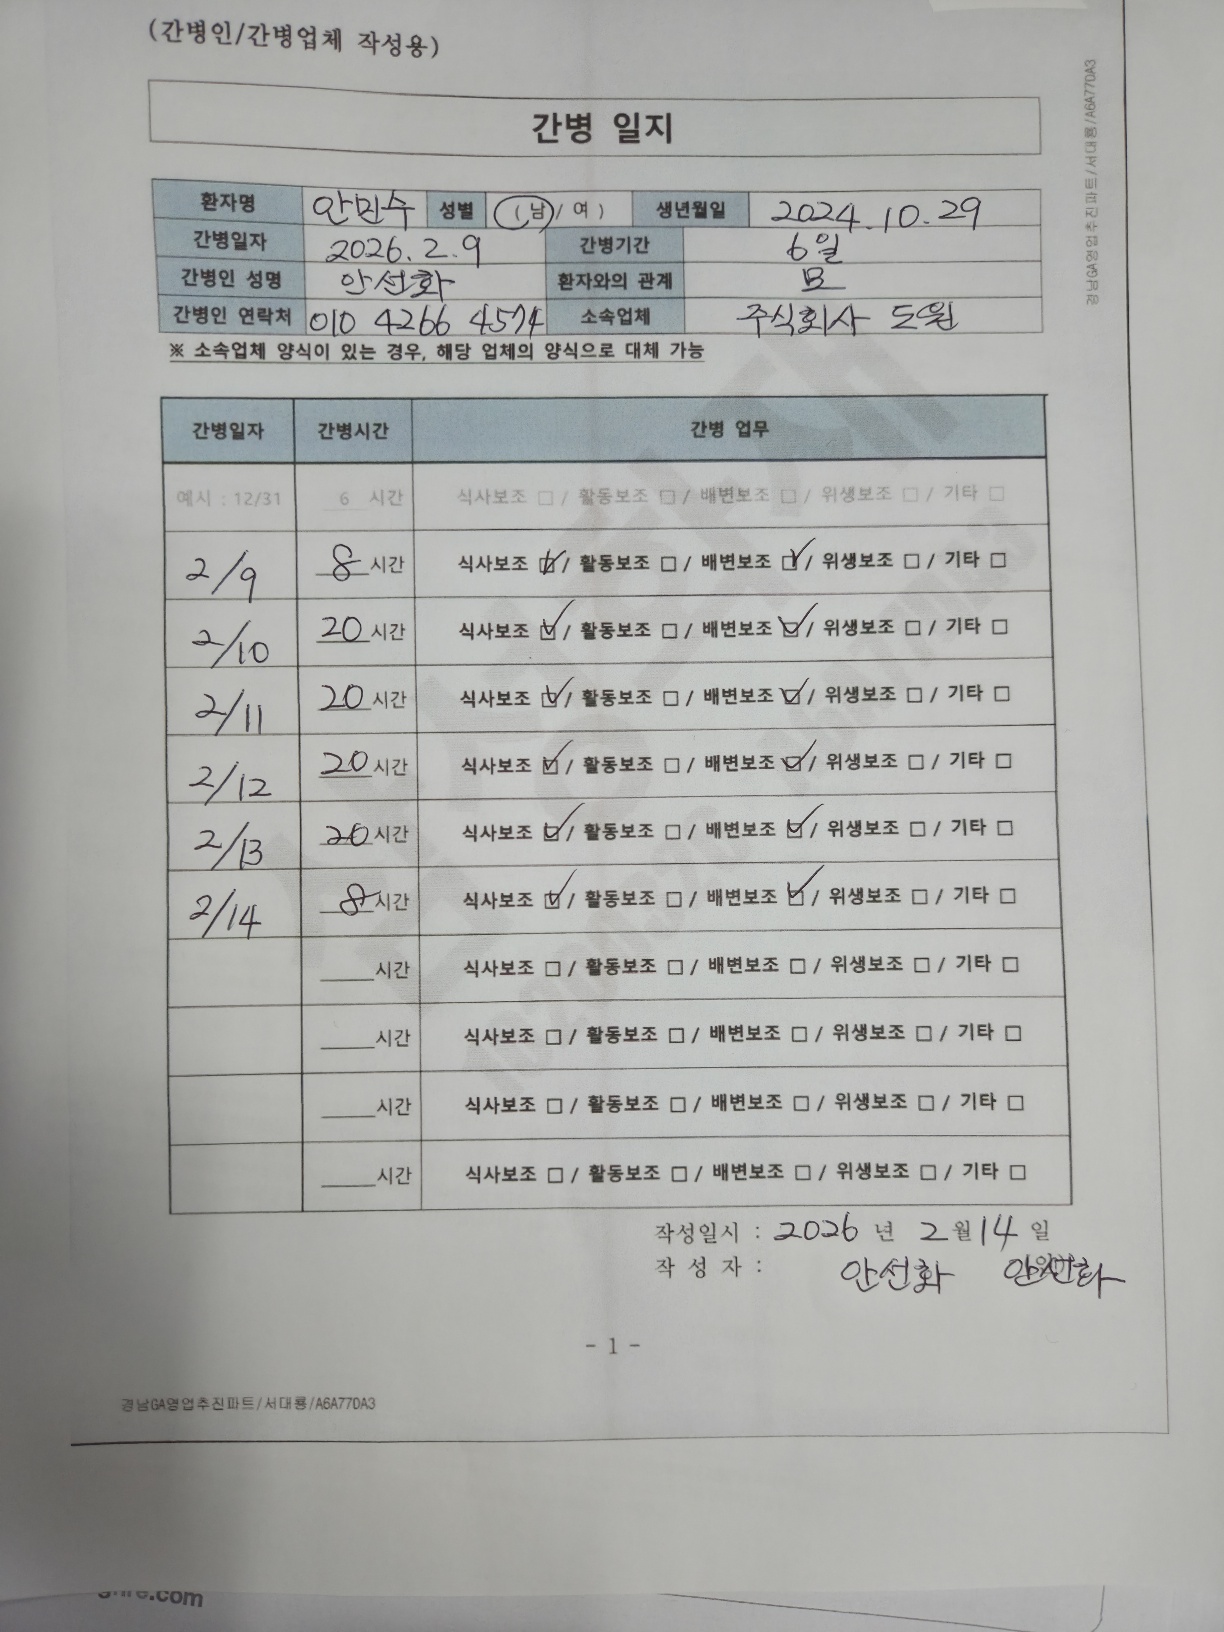 (간병인/간병업체 작성용)
간병 일지
환자명 안민수 성별 (남/여) 생년월일 2024.10.29
간병일자 2026.2.9 간병기간 6일
간병인 성명 안선화 환자와의 관계 모
간병인 연락처 010 4266 4574 소속업체 주식회사 도원
※ 소속업체 양식이 있는 경우, 해당 업체의 양식으로 대체 가능
간병일자 간병시간 간병 업무
예시 : 12/31 6 시간 식사보조 □ / 활동보조 □ / 배변보조 □ / 위생보조 □ / 기타 □
2/9 8 시간 식사보조 ☑ / 활동보조 □ / 배변보조 ☑ / 위생보조 □ / 기타 □
2/10 20 시간 식사보조 ☑ / 활동보조 □ / 배변보조 ☑ / 위생보조 □ / 기타 □
2/11 20 시간 식사보조 ☑ / 활동보조 □ / 배변보조 ☑ / 위생보조 □ / 기타 □
2/12 20 시간 식사보조 ☑ / 활동보조 □ / 배변보조 ☑ / 위생보조 □ / 기타 □
2/13 20 시간 식사보조 ☑ / 활동보조 □ / 배변보조 ☑ / 위생보조 □ / 기타 □
2/14 8 시간 식사보조 ☑ / 활동보조 □ / 배변보조 ☑ / 위생보조 □ / 기타 □
시간 식사보조 □ / 활동보조 □ / 배변보조 □ / 위생보조 □ / 기타 □
시간 식사보조 □ / 활동보조 □ / 배변보조 □ / 위생보조 □ / 기타 □
시간 식사보조 □ / 활동보조 □ / 배변보조 □ / 위생보조 □ / 기타 □
시간 식사보조 □ / 활동보조 □ / 배변보조 □ / 위생보조 □ / 기타 □
작성일시 : 2026 년 2 월 14 일
작 성 자 : 안선화 안선화
- 1 -
경남GA영업추진파트/서대룡/A6A77DA3
경남GA영업추진파트/서대룡/A6A77DA3